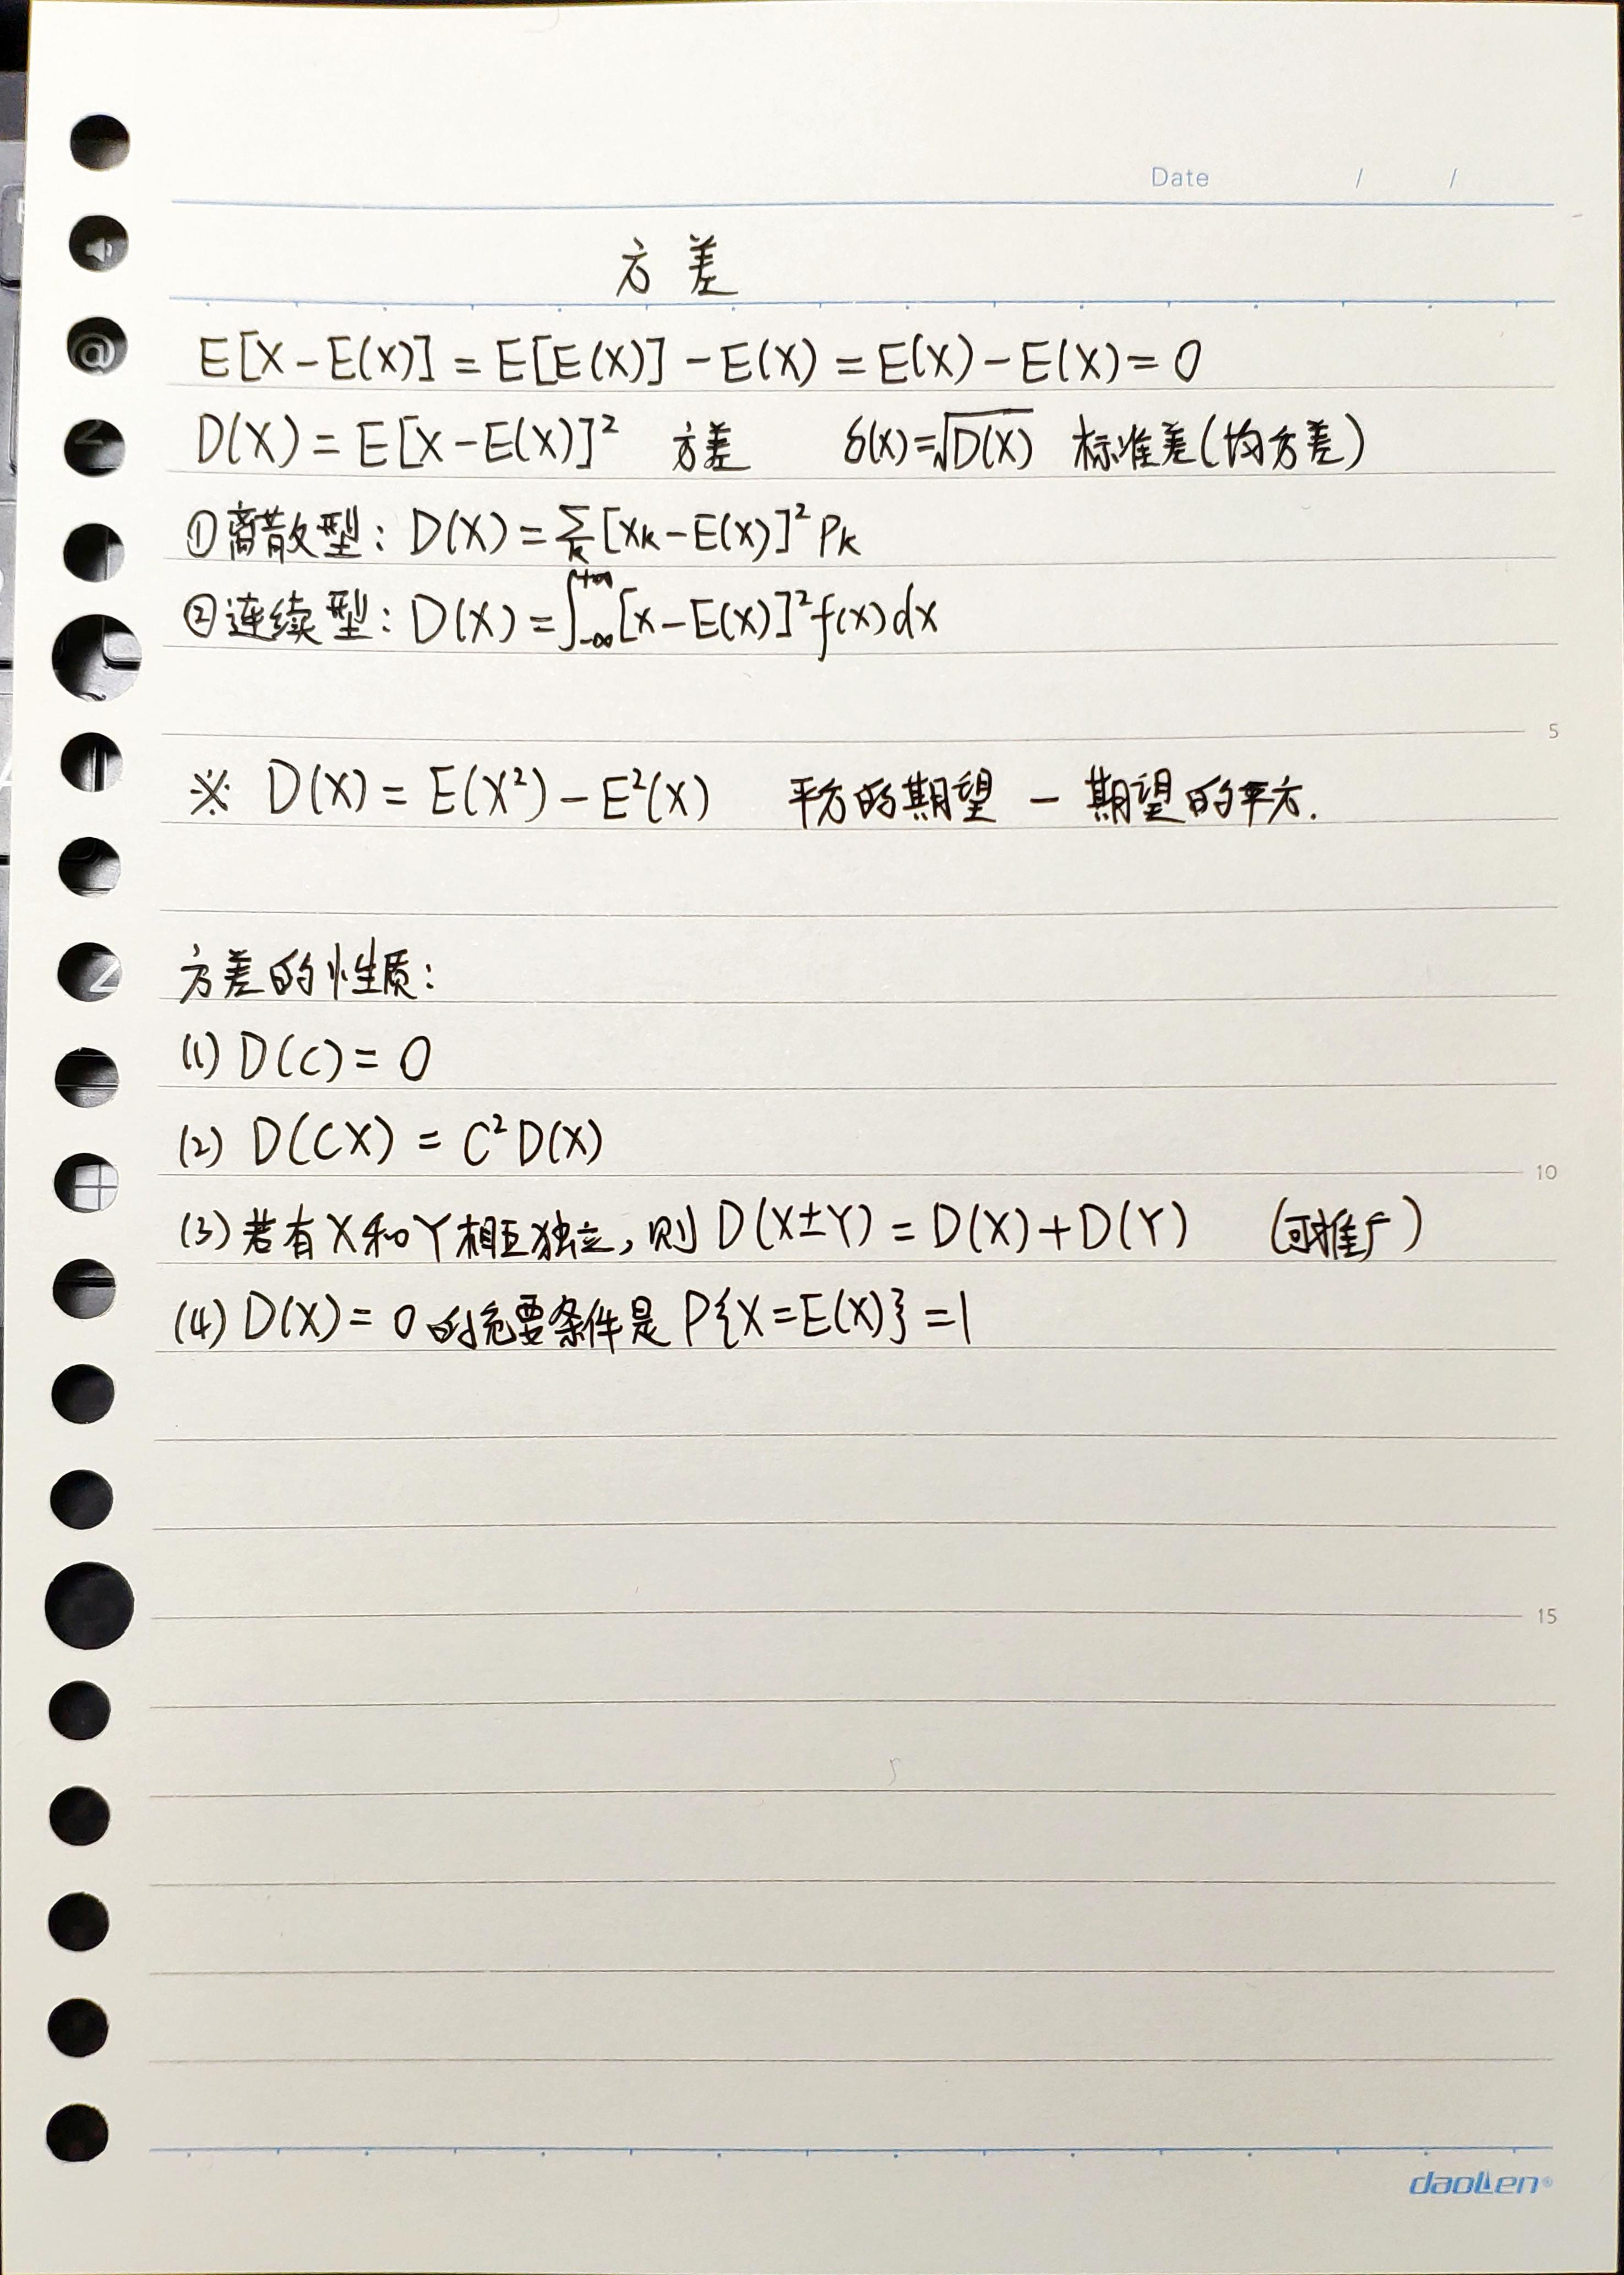 Date / /
方差
E[X-E(X)] = E[E(X)] - E(X) = E(X) - E(X) = 0
D(X) = E[X-E(X)]² 方差 δ(X)=√D(X) 标准差(均方差)
①离散型: D(X) = ∑k [xk-E(X)]² Pk
②连续型: D(X) = ∫-∞+∞ [x-E(X)]² f(x)dx
5
※ D(X) = E(X²) - E²(X) 平方的期望 - 期望的平方.
方差的性质:
(1) D(C) = 0
(2) D(CX) = C²D(X)
10
(3) 若有X和Y相互独立, 则 D(X±Y) = D(X)+D(Y) (可推广)
(4) D(X) = 0 的充要条件是 P{X=E(X)} = 1
15
daolen®